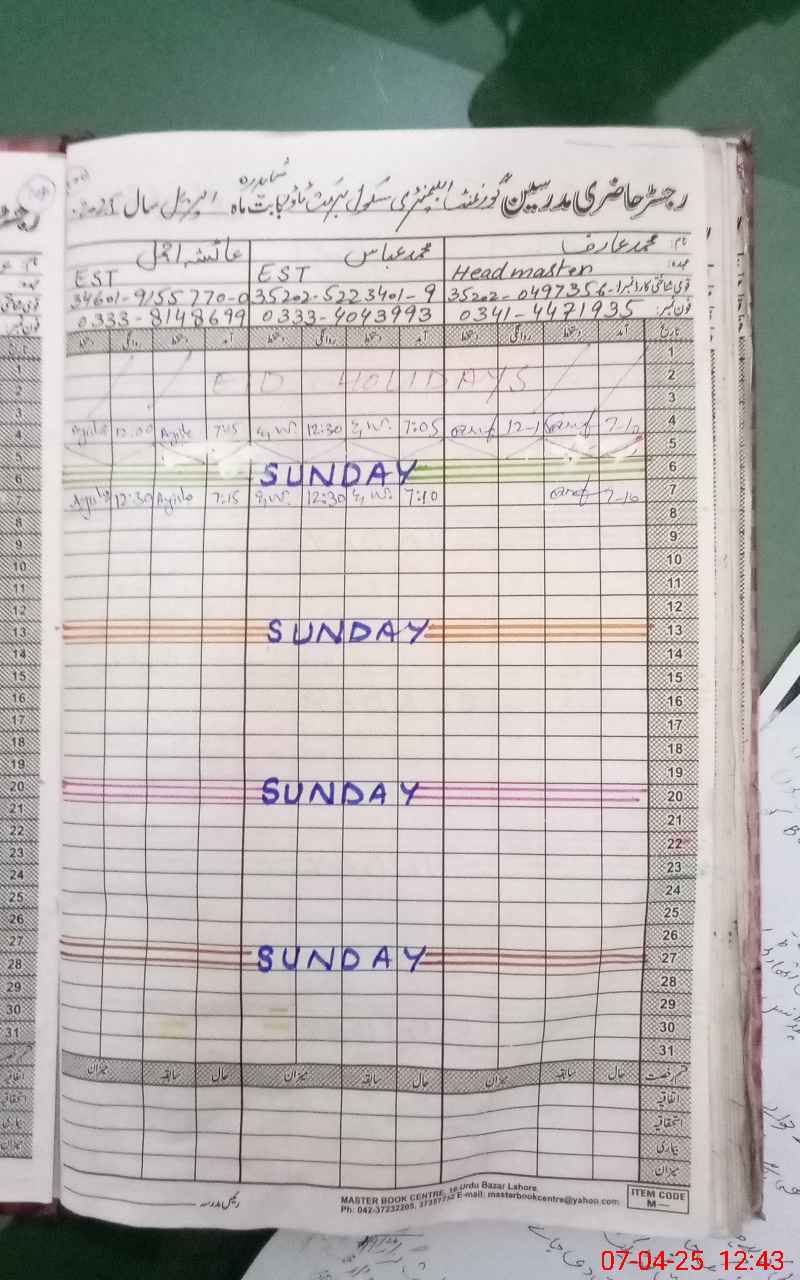 رجسٹر حاضری مدرسین گورنمنٹ ایلیمنٹری سکول بابت ماہ اپریل سال 2025
نام: محمد عارف محمد عباس عائشہ اجمل
عہدہ: Headmaster EST EST
قومی شناختی کارڈ نمبر: 35202-0497356-1 35202-5223401-9 34601-9155770-0
فون نمبر: 0341-4471935 0333-4043993 0333-8148699
تاریخ آمد دستخط روانگی دستخط آمد دستخط روانگی دستخط آمد دستخط روانگی دستخط
1
2 EID HOLIDAYS
3
4 7-10 عارف 12-1 عارف 7:05 12:30 7:45 Ayesha 12:00 Ayesha
5
6 SUNDAY
7 7-10 عارف 7:10 12:30 7:15 Ayesha 12:30 Ayesha
8
9
10
11
12
13 SUNDAY
14
15
16
17
18
19
20 SUNDAY
21
22
23
24
25
26
27 SUNDAY
28
29
30
31
قسم رخصت حال سابقہ میزان حال سابقہ میزان حال سابقہ میزان
اتفاقیہ
استحقاقیہ
بیماری
میزان
رئیس مدرسہ
MASTER BOOK CENTRE, 16-Urdu Bazar Lahore.
Ph: 042-37232205, E-mail: masterbookcentre@yahoo.com
ITEM CODE
M—
07-04-25 12:43